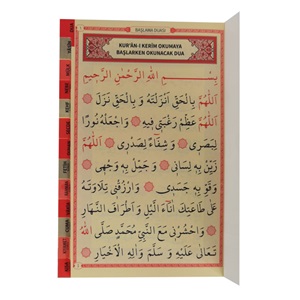 BAŞLAMA DUASI
KUR'ÂN-I KERİM OKUMAYA
BAŞLARKEN OKUNACAK DUA
بِسْمِ اللّٰهِ الرَّحْمٰنِ الرَّحِيمِ
اَللّٰهُمَّ بِالْحَقِّ اَنْزَلْتَهُ وَ بِالْحَقِّ نَزَلَ
اَللّٰهُمَّ عَظِّمْ رَغْبَتِى فِيهِ وَاجْعَلْهُ نُورًا
لِبَصَرِى وَشِفَاءً لِصَدْرِى اَللّٰهُمَّ
زَيِّنْ بِهِ لِسَانِى وَ جَمِّلْ بِهِ وَجْهِى
وَقَوِّ بِهِ جَسَدِى وَارْزُقْنِى تِلَاوَتَهُ
عَلٰى طَاعَتِكَ اٰنَاءَ الَّيْلِ وَ اَطْرَافَ النَّهَارِ
وَاحْشُرْنِى مَعَ النَّبِىِّ مُحَمَّدٍ صَلَّى اللّٰهُ
تَعَالٰى عَلَيْهِ وَ سَلَّمَ وَاٰلِهِ الْاَخْيَارِ